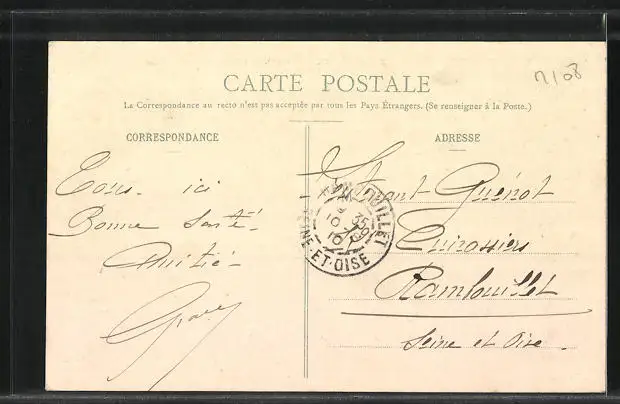 CARTE POSTALE
La Correspondance au recto n'est pas acceptée par tous les Pays Étrangers. (Se renseigner à la Poste.)
CORRESPONDANCE
ici
Bonne santé
Amitié
ADRESSE
Guénot
Cuirassiers
Rambouillet
Seine et Oise
SEINE-ET-OISE